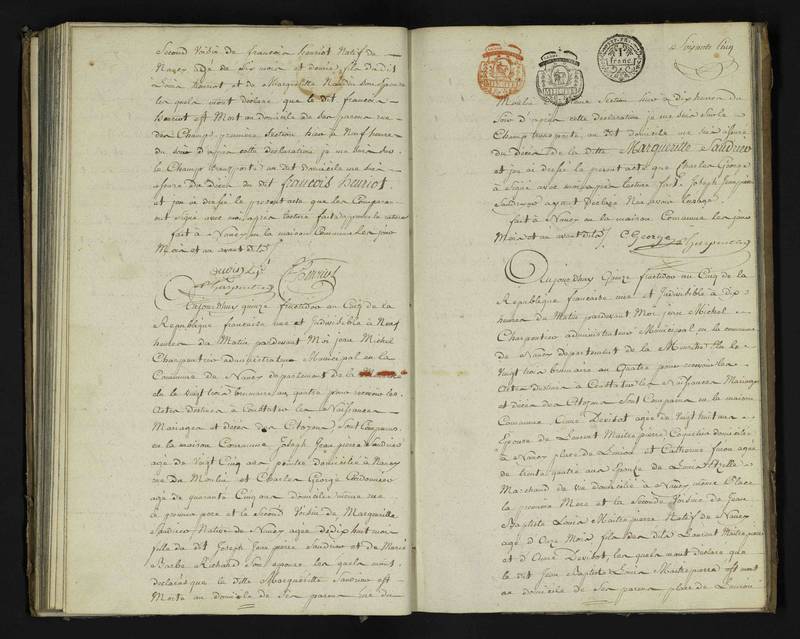 Second Voisin de francois henriot Natif de
Nancy agé de Six mois et demie fils du dit
Louis henriot et de Marguerite Naudin Son Epouse
les quels mont declaré que le dit francois
henriot est Mort au domicile de Ses parens rue
des Champs premiere Section hier a Neuf heures
du Soir d'apres cette declaration je me suis sur
le Champ transporté au dit domicile me suis
assuré du deces du dit francois henriot.
et jai de dressé le present acte que les Comparans
ont signé avec moi apres lecture faite
fait a Nancy en la maison Commune les jour
Mois et an avant dits
henriot
Charpentier
Aujourdhuy quinze fructidor an Cinq de la
Republique francaise une et Indivisible à Neuf
heures du Matin pardevant Moi jean Michel
Charpentier administrateur Municipal en la
Commune de Nancy departement de la
elu le vingt trois brumaire an quatre pour recevoir les
actes destinés à Constater les Naissances
Mariages et décès des Citoyens, Sont Comparus
en la maison Commune Joseph Jean pierre Sandrier
agé de Vingt Cinq ans peintre Domicilié à Nancy
rue du Moulin et Charles George Cordonnier
agé de quarante Cinq ans domicilié même rue
le premier pere et le Second Voisin de Marguerite
Sandrier Native de Nancy agée de dix huit mois
fille du dit Joseph Jean pierre Sandrier et de Marie
Barbe Richard Son epouse les quels mont
declarés que la ditte Marguerite Sandrier est
Morte au domicile de Ses parens rue du
Soixante Cinq
1
franc
Moulin Section hier a Dix heures du
Soir d'apres cette declaration je me suis Sur le
Champ transporté au dit domicile me suis assuré
du Décès de la ditte Marguerite Sandrier
et jai de dressé le present acte que Charles George
a signé avec moi apres lecture faite Joseph Jean pierre
Sandrier ayant Declaré Ne savoir
fait à Nancy en la maison Commune les jour
Mois et an avant dits C George Charpentier
Aujourdhuy Quinze fructidor an Cinq de la
Republique francaise une et Indivisible à Dix
heures du Matin pardevant Moi jean Michel
Charpentier administrateur Municipal en la commune
de Nancy departement de la Meurthe Elu le
vingt trois brumaire an Quatre pour recevoir les
actes destinés à Constater les Naissances Mariages
et décès des Citoyens Sont Comparus en la maison
Commune Anne Devitot agée de Vingt huit ans
Epouse de Laurent Maitre pierre Coquetier domiciliée
à Nancy place de l'union et Catherine feron agée
de trente quatre ans Epouse de Louis
Marchand de vin domiciliée à Nancy même Place
la premiere Mere et la Seconde Voisine de Jean
Baptiste Louis Maitre pierre Natif de Nancy
agé d'Onze Mois fils des dits Laurent Maitre pierre
et d'Anne Devitot, les quels mont declaré que
le dit Jean Baptiste Louis Maitre pierre est mort
au domicile de Ses parens place de l'union